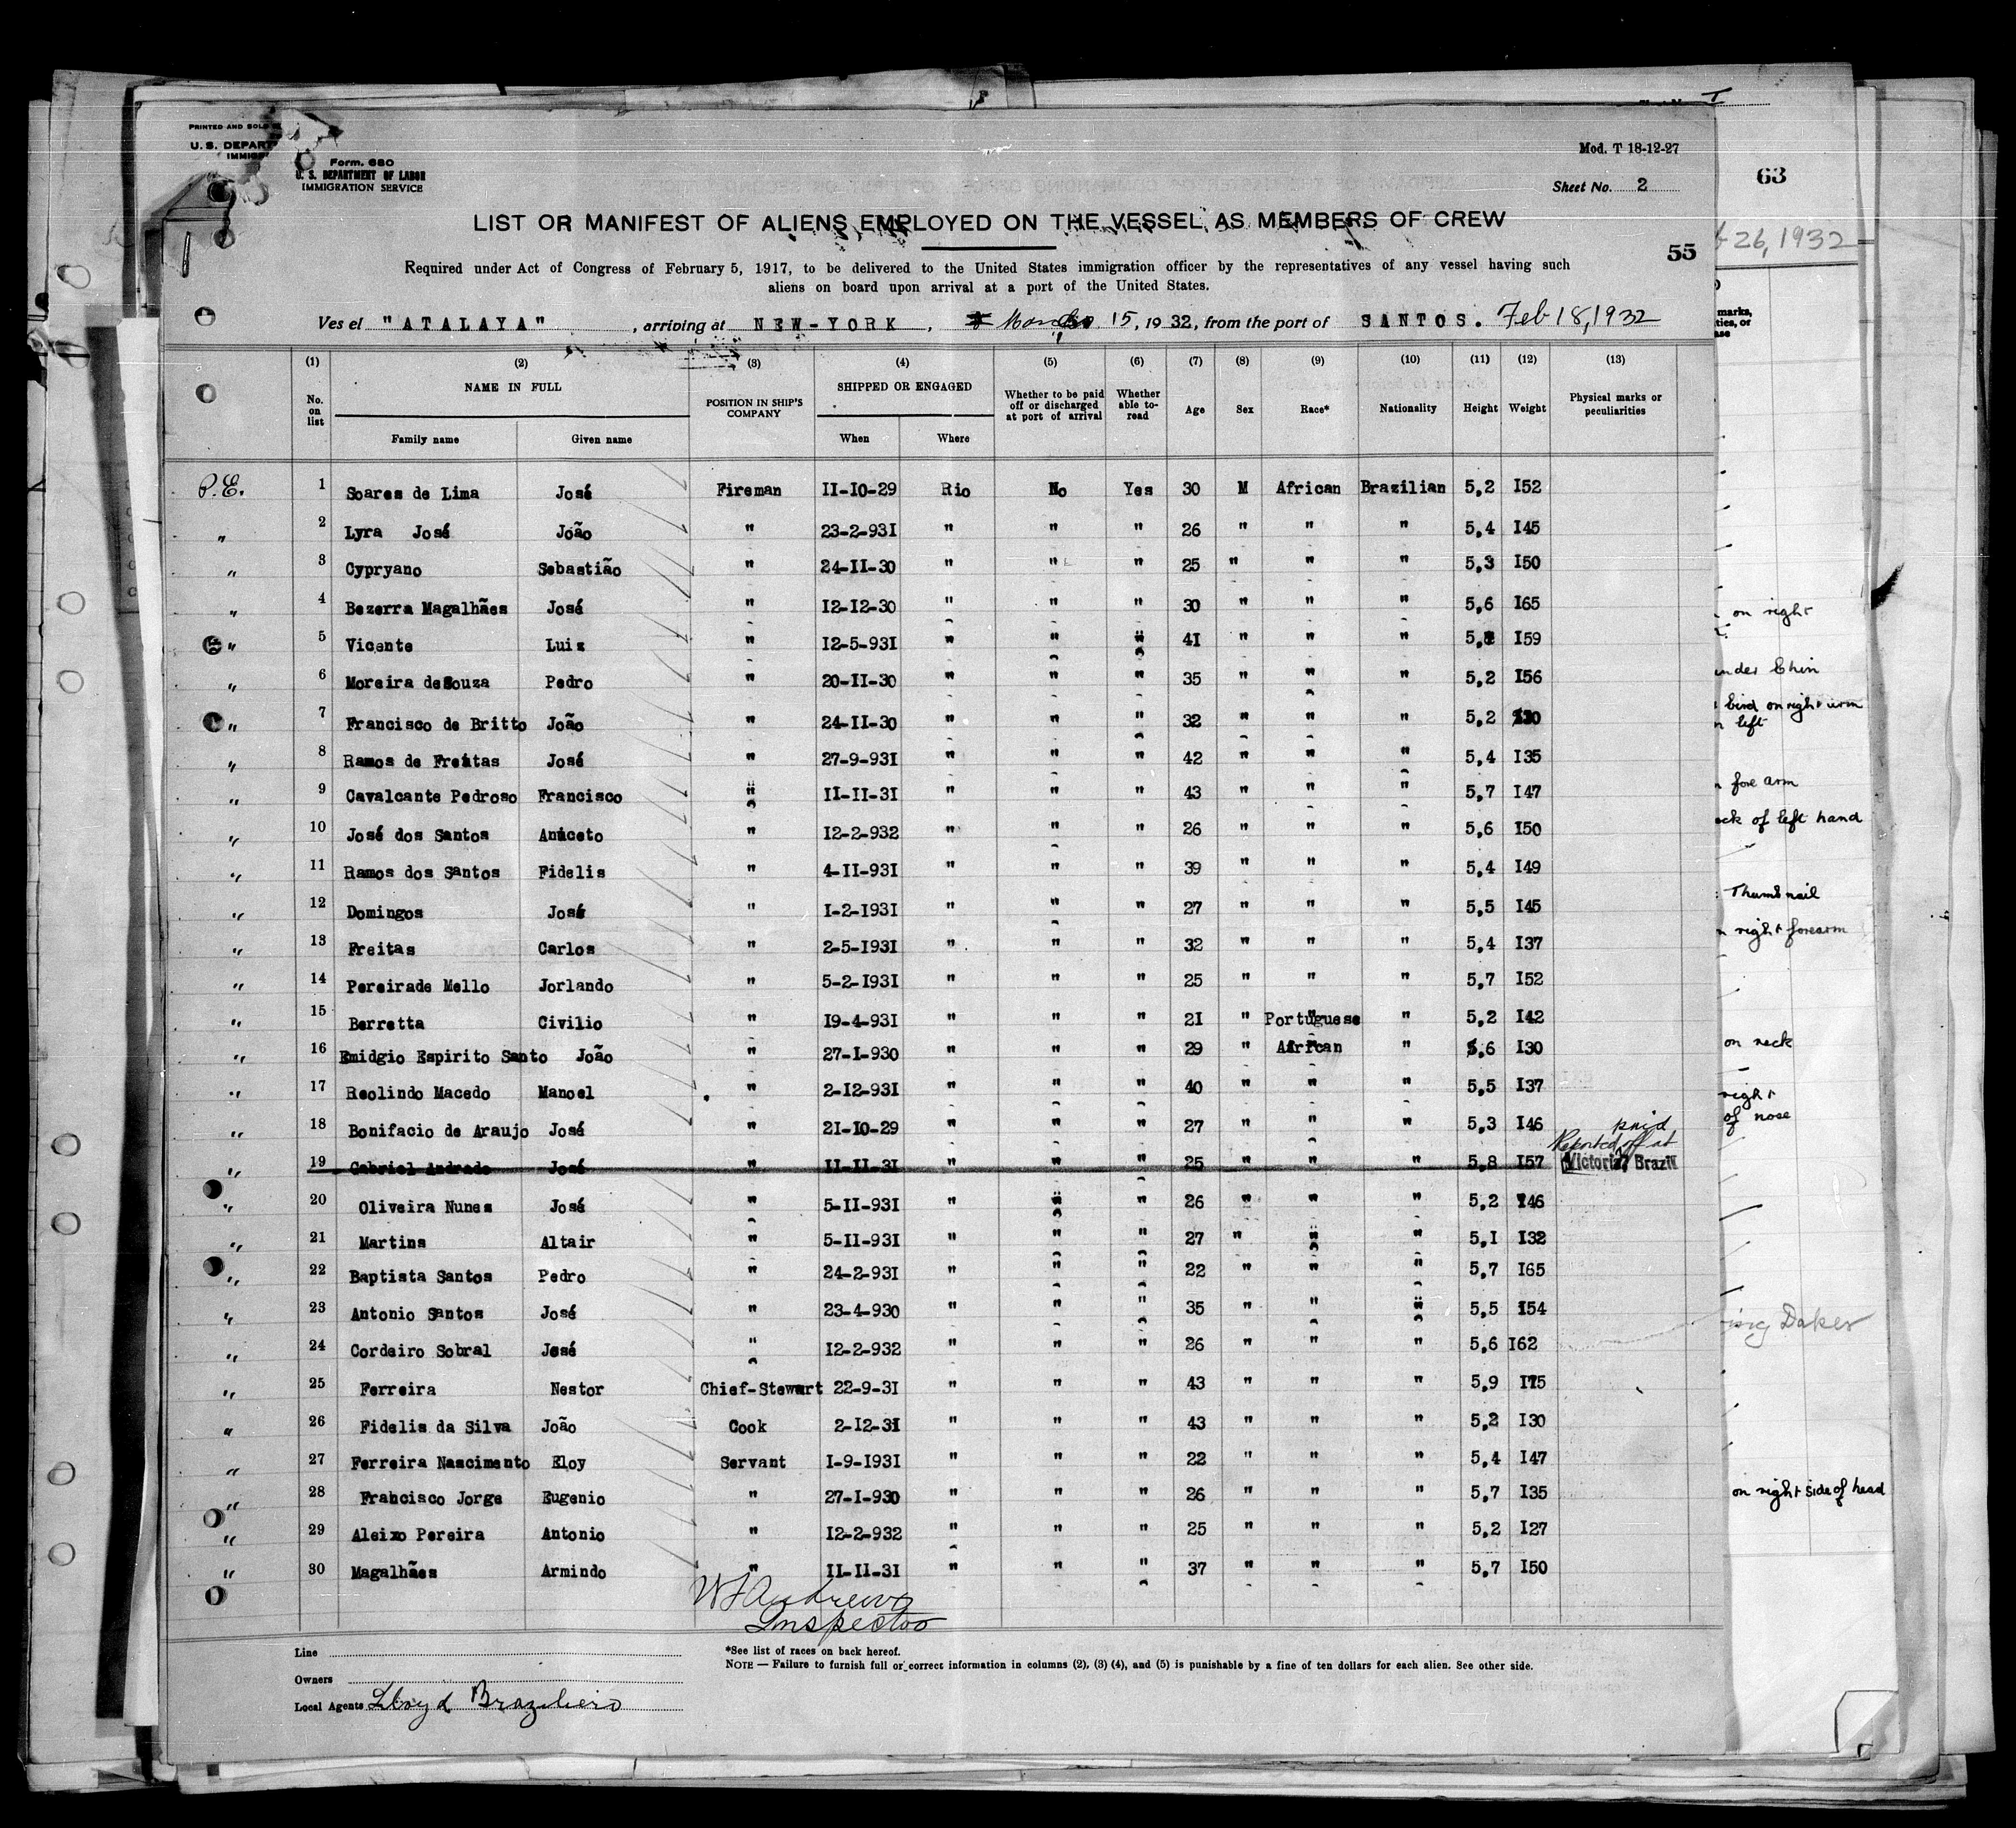 PRINTED AND SOLD
U. S. DEPART
IMMIG
Form. 680
U. S. DEPARTMENT OF LABOR
IMMIGRATION SERVICE
Mod. T 18-12-27
Sheet No. 2
63
LIST OR MANIFEST OF ALIENS EMPLOYED ON THE VESSEL AS MEMBERS OF CREW
55
26, 1932
Required under Act of Congress of February 5, 1917, to be delivered to the United States immigration officer by the representatives of any vessel having such
aliens on board upon arrival at a port of the United States.
Ves el "ATALAYA", arriving at NEW-YORK, March 15, 1932, from the port of SANTOS. Feb 18, 1932
(1) (2) (3) (4) (5) (6) (7) (8) (9) (10) (11) (12) (13)
No. on list NAME IN FULL POSITION IN SHIP'S COMPANY SHIPPED OR ENGAGED Whether to be paid off or discharged at port of arrival Whether able to-read Age Sex Race* Nationality Height Weight Physical marks or peculiarities
Family name Given name When Where
P.E. 1 Soares de Lima José Fireman II-IO-29 Rio No Yes 30 M African Brazilian 5,2 I52
" 2 Lyra José João " 23-2-93I " " " 26 " " " 5,4 I45
" 3 Cypryano Sebastião " 24-II-30 " " " 25 " " " 5,3 I50
" 4 Bezerra Magalhães José " I2-I2-30 " " " 30 " " " 5,6 I65
" 5 Vicente Luiz " I2-5-93I " " " 4I " " " 5, I59
" 6 Moreira deSouza Pedro " 20-II-30 " " " 35 " " " 5,2 I56
" 7 Francisco de Britto João " 24-II-30 " " " 32 " " " 5,2
" 8 Ramos de Freitas José " 27-9-93I " " " 42 " " " 5,4 I35
" 9 Cavalcante Pedroso Francisco " II-II-3I " " " 43 " " " 5,7 I47
" 10 José dos Santos Aniceto " I2-2-932 " " " 26 " " " 5,6 I50
" 11 Ramos dos Santos Fidelis " 4-II-93I " " " 39 " " " 5,4 I49
" 12 Domingos José " I-2-I93I " " " 27 " " " 5,5 I45
" 13 Freitas Carlos " 2-5-I93I " " " 32 " " " 5,4 I37
" 14 Pereirade Mello Jorlando " 5-2-I93I " " " 25 " " " 5,7 I52
" 15 Berretta Civilio " I9-4-93I " " " 2I " Portuguese " 5,2 I42
" 16 Emidgio Espirito Santo João " 27-I-930 " " " 29 " African " 5,6 I30
" 17 Reolindo Macedo Manoel " 2-I2-93I " " " 40 " " " 5,5 I37
" 18 Bonifacio de Araujo José " 2I-IO-29 " " " 27 " " " 5,3 I46
" 19 Gabriel Andrade José " II-II-3I " " " 25 " " " 5,8 I57 Reported paid off at Victoria, Brazil
" 20 Oliveira Nunes José " 5-II-93I " " " 26 " " " 5,2 I46
" 21 Martins Altair " 5-II-93I " " " 27 " " " 5,I I32
" 22 Baptista Santos Pedro " 24-2-93I " " " 22 " " " 5,7 I65
" 23 Antonio Santos José " 23-4-930 " " " 35 " " " 5,5 I54
" 24 Cordeiro Sobral José " I2-2-932 " " " 26 " " " 5,6 I62
" 25 Ferreira Nestor Chief-Stewart 22-9-3I " " " 43 " " " 5,9 I75
" 26 Fidelis da Silva João Cook 2-I2-3I " " " 43 " " " 5,2 I30
" 27 Ferreira Nascimento Eloy Servant I-9-I93I " " " 22 " " " 5,4 I47
" 28 Francisco Jorge Eugenio " 27-I-930 " " " 26 " " " 5,7 I35
" 29 Aleixo Pereira Antonio " I2-2-932 " " " 25 " " " 5,2 I27
" 30 Magalhães Armindo " II-II-3I " " " 37 " " " 5,7 I50
W J Andrews
Inspector
Line
Owners
Local Agents Lloyd Braziliero
*See list of races on back hereof.
NOTE — Failure to furnish full or correct information in columns (2), (3) (4), and (5) is punishable by a fine of ten dollars for each alien. See other side.
marks,
ties, or
ase
on right
under Chin
bird on right arm
left
fore arm
ck of left hand
Thumb nail
right forearm
on neck
right
of nose
on right side of head